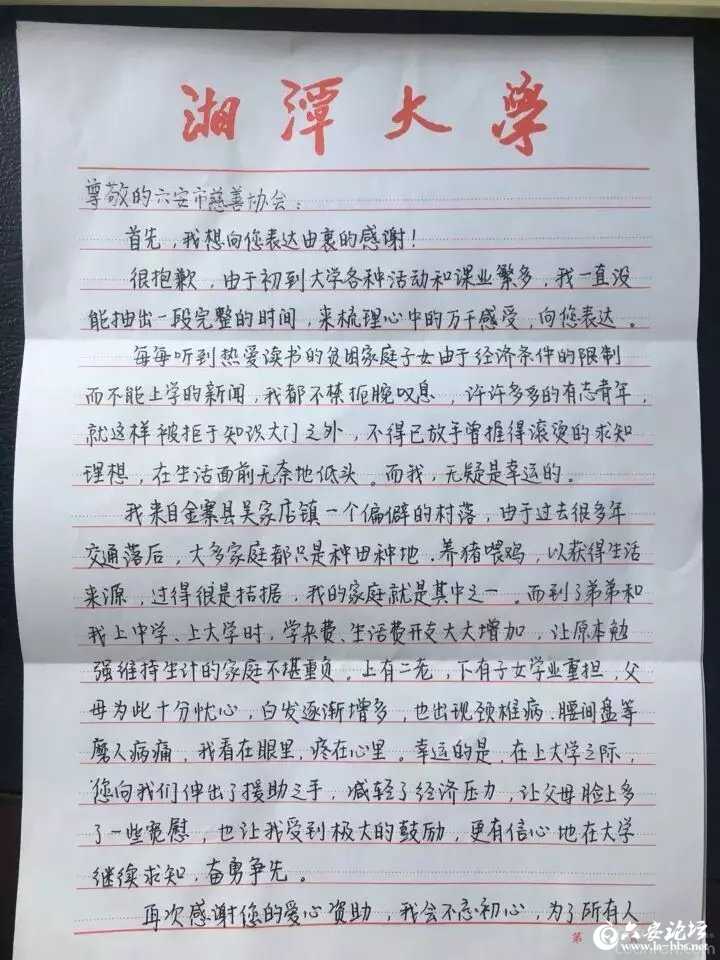 湘潭大学
尊敬的六安市慈善协会：
首先，我想向您表达由衷的感谢！
很抱歉，由于初到大学各种活动和课业繁多，我一直没
能抽出一段完整的时间，来梳理心中的万千感受，向您表达。
每每听到热爱读书的贫困家庭子女由于经济条件的限制
而不能上学的新闻，我都不禁扼腕叹息，许许多多的有志青年，
就这样被拒于知识大门之外，不得已放手曾握得滚烫的求知
理想，在生活面前无奈地低头。而我，无疑是幸运的。
我来自金寨县吴家店镇一个偏僻的村落，由于过去很多年
交通落后，大多家庭都只是种田种地、养猪喂鸡，以获得生活
来源，过得很是拮据，我的家庭就是其中之一。而到了弟弟和
我上中学、上大学时，学杂费、生活费开支大大增加，让原本勉
强维持生计的家庭不堪重负。上有二老，下有子女学业重担，父
母为此十分忧心，白发逐渐增多，也出现颈椎病、腰间盘等
磨人病痛，我看在眼里，疼在心里。幸运的是，在上大学之际，
您向我们伸出了援助之手，减轻了经济压力，让父母脸上多
了一些宽慰，也让我受到极大的鼓励，更有信心地在大学
继续求知，奋勇争先。
再次感谢您的爱心资助，我会不忘初心，为了所有人
第
六安论坛
www.la-bbs.net